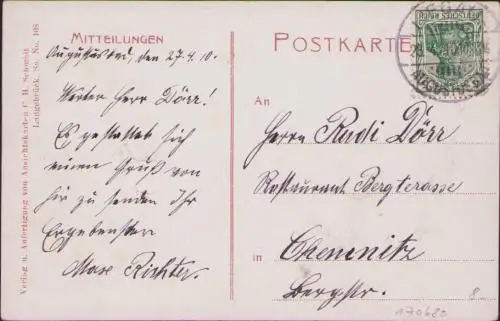 MITTEILUNGEN
Augustusbad, den 27.4.10.
Werter Herr Dörr!
Es gestattet sich
einen Gruß von
hir zu senden Ihr
Ergebenster
Max Richter.
Verlag u. Anfertigung von Ansichtskarten C. H. Schmidt
Langebrück, Sa. No. 108
POSTKARTE
DEUTSCHES REICH
An
Herrn Rudi Dörr
Restaurant Bergterasse
in Chemnitz
Bergstr.
170680
8.-